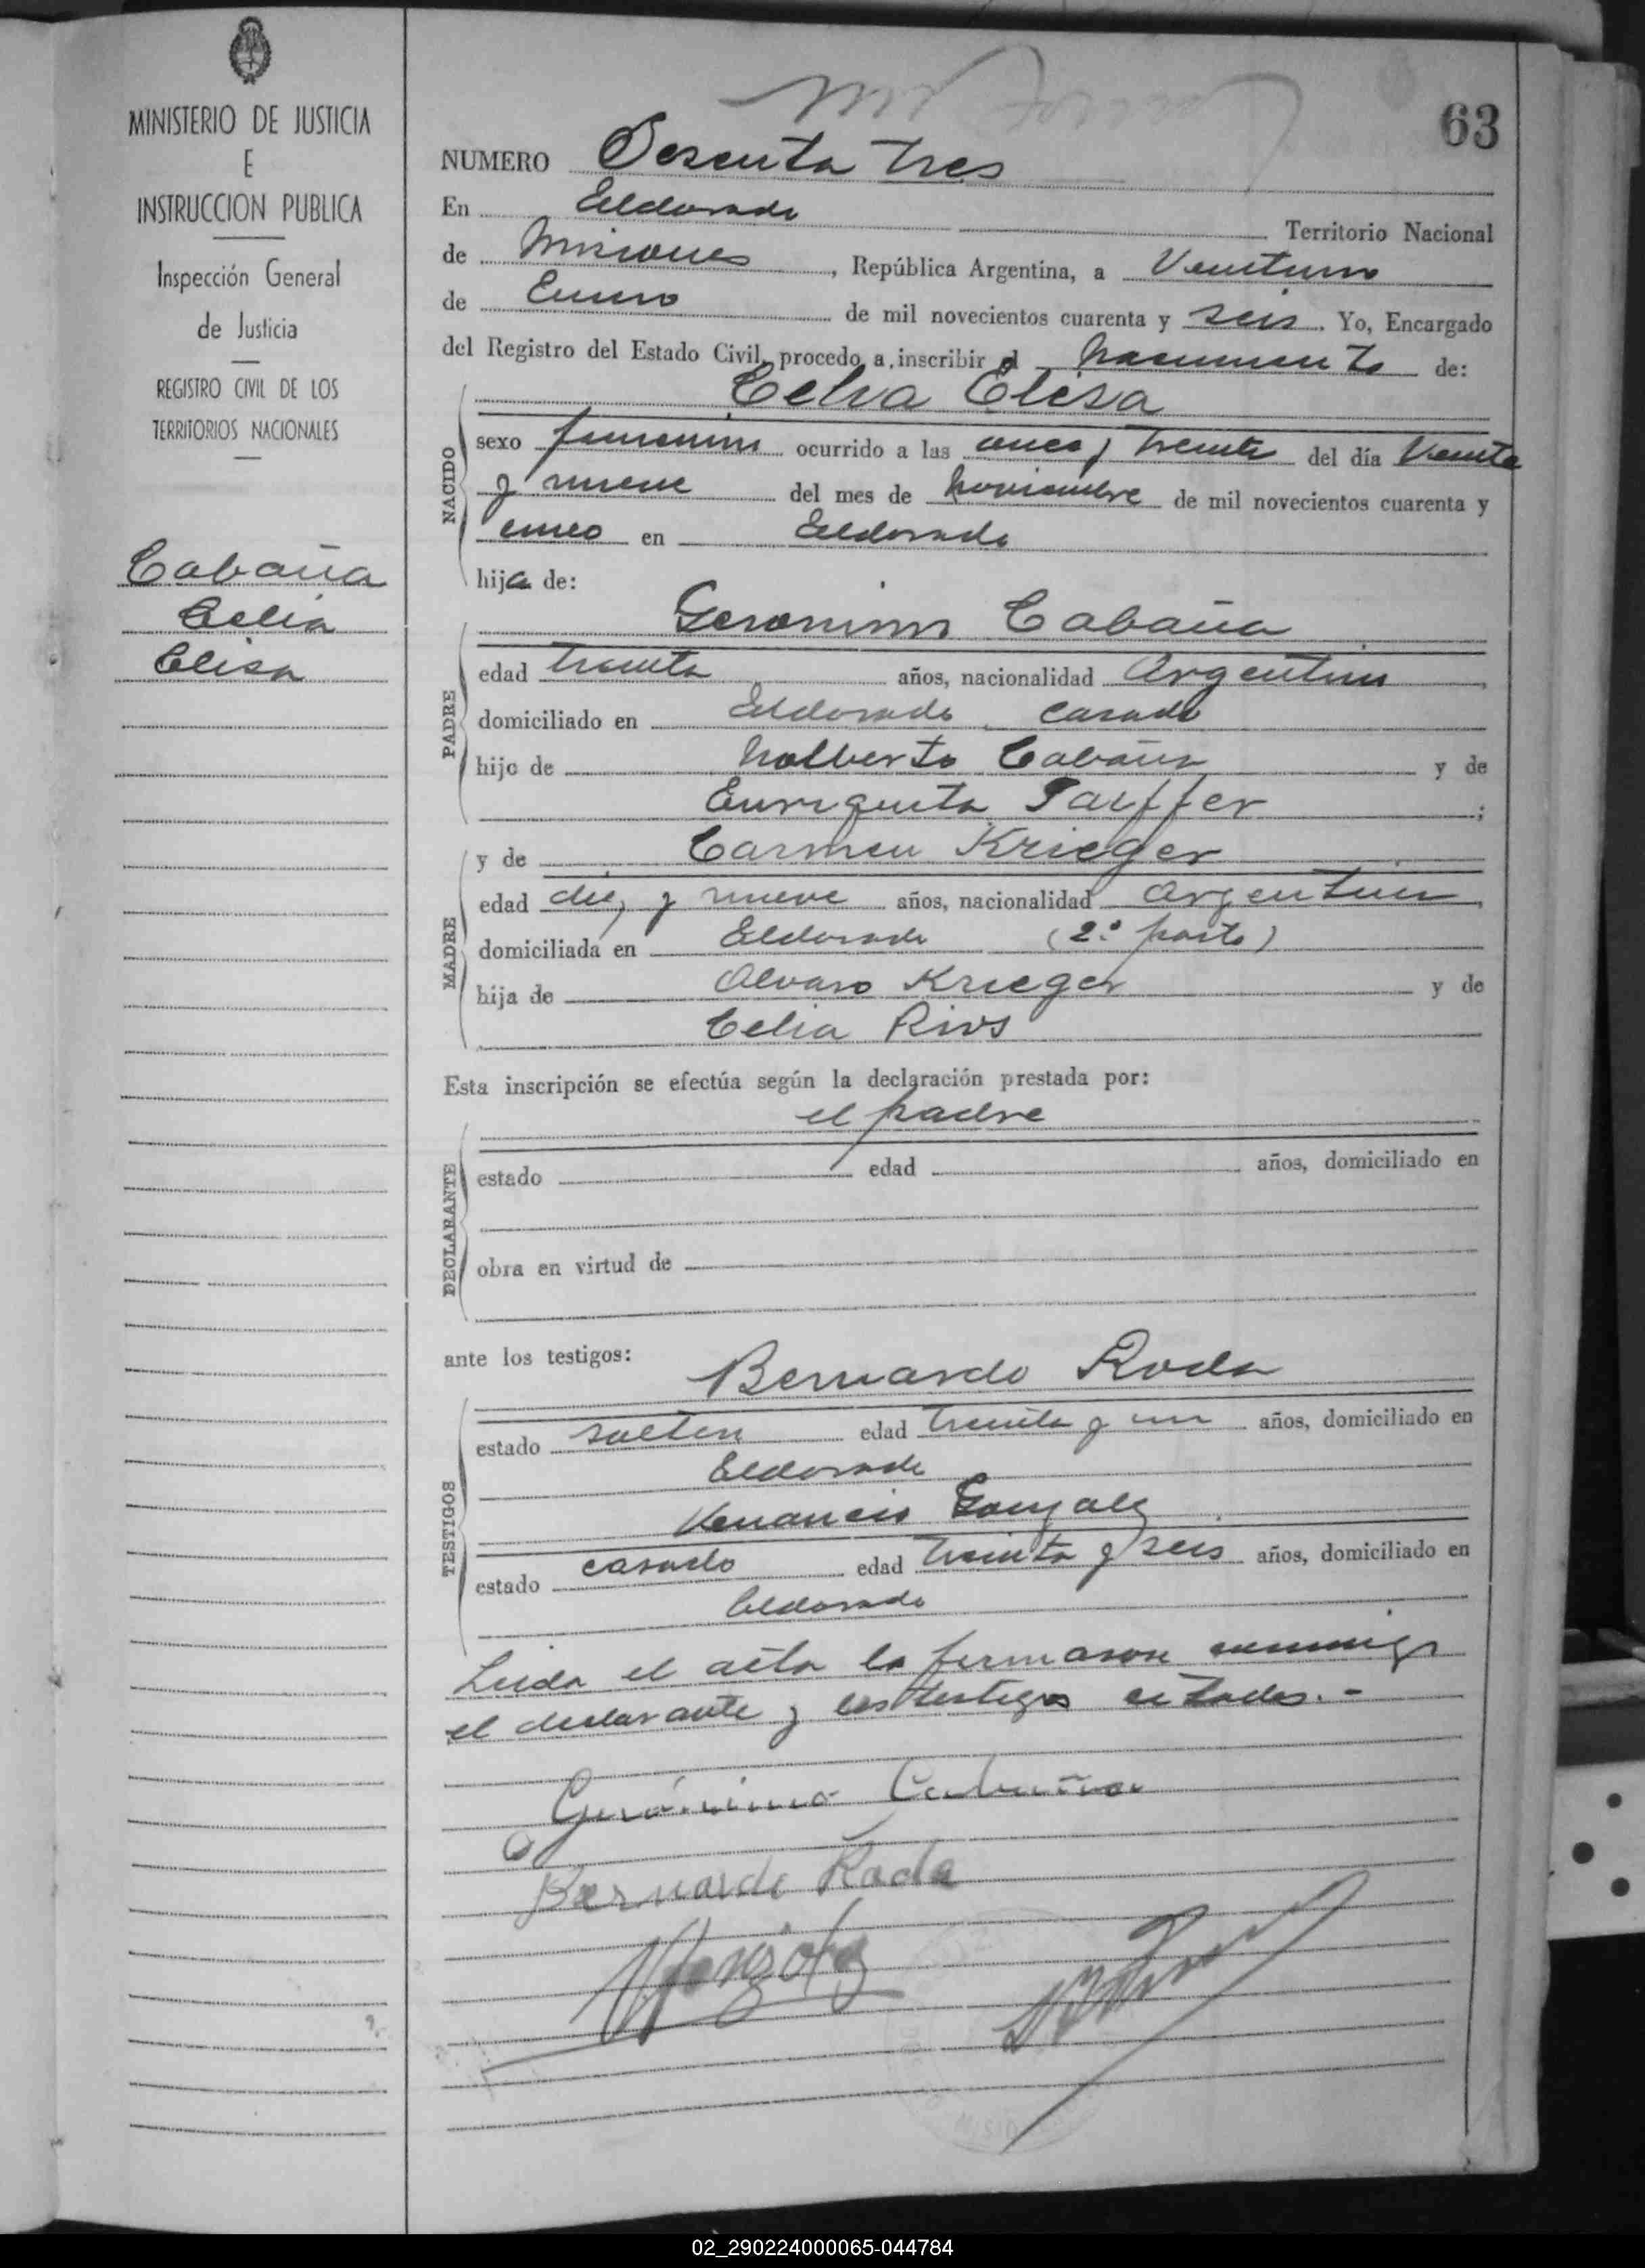 MINISTERIO DE JUSTICIA
E
INSTRUCCION PUBLICA
Inspección General
de Justicia
REGISTRO CIVIL DE LOS
TERRITORIOS NACIONALES
Cabaña
Celia
Elisa
63
NUMERO Sesenta tres
En Eldorado Territorio Nacional
de Misiones, República Argentina, a Veintiuno
de Enero de mil novecientos cuarenta y seis. Yo, Encargado
del Registro del Estado Civil, procedo a inscribir el nacimiento de:
Celia Elisa
NACIDO
sexo femenino ocurrido a las once y treinta del día Veinte
y nueve del mes de Noviembre de mil novecientos cuarenta y
cinco en Eldorado
hija de:
Geronimo Cabaña
PADRE
edad treinta años, nacionalidad Argentino
domiciliado en Eldorado casado
hijo de Nolberto Cabaña y de
Enriqueta Taiffer;
MADRE
y de Carmen Krieger
edad diez y nueve años, nacionalidad argentina,
domiciliada en Eldorado (2° parto)
hija de Alvaro Krieger y de
Celia Rios
Esta inscripción se efectúa según la declaración prestada por:
el padre
DECLARANTE
estado edad años, domiciliado en
obra en virtud de
ante los testigos:
Bernardo Roda
TESTIGOS
estado soltero edad treinta y un años, domiciliado en
Eldorado
Venancio Gonzalez
estado casado edad treinta y seis años, domiciliado en
Eldorado
Leida el acta la firmaron conmigo
el declarante y los testigos citados.-
Gerónimo Cabaña
Bernardo Roda
02_290224000065-044784